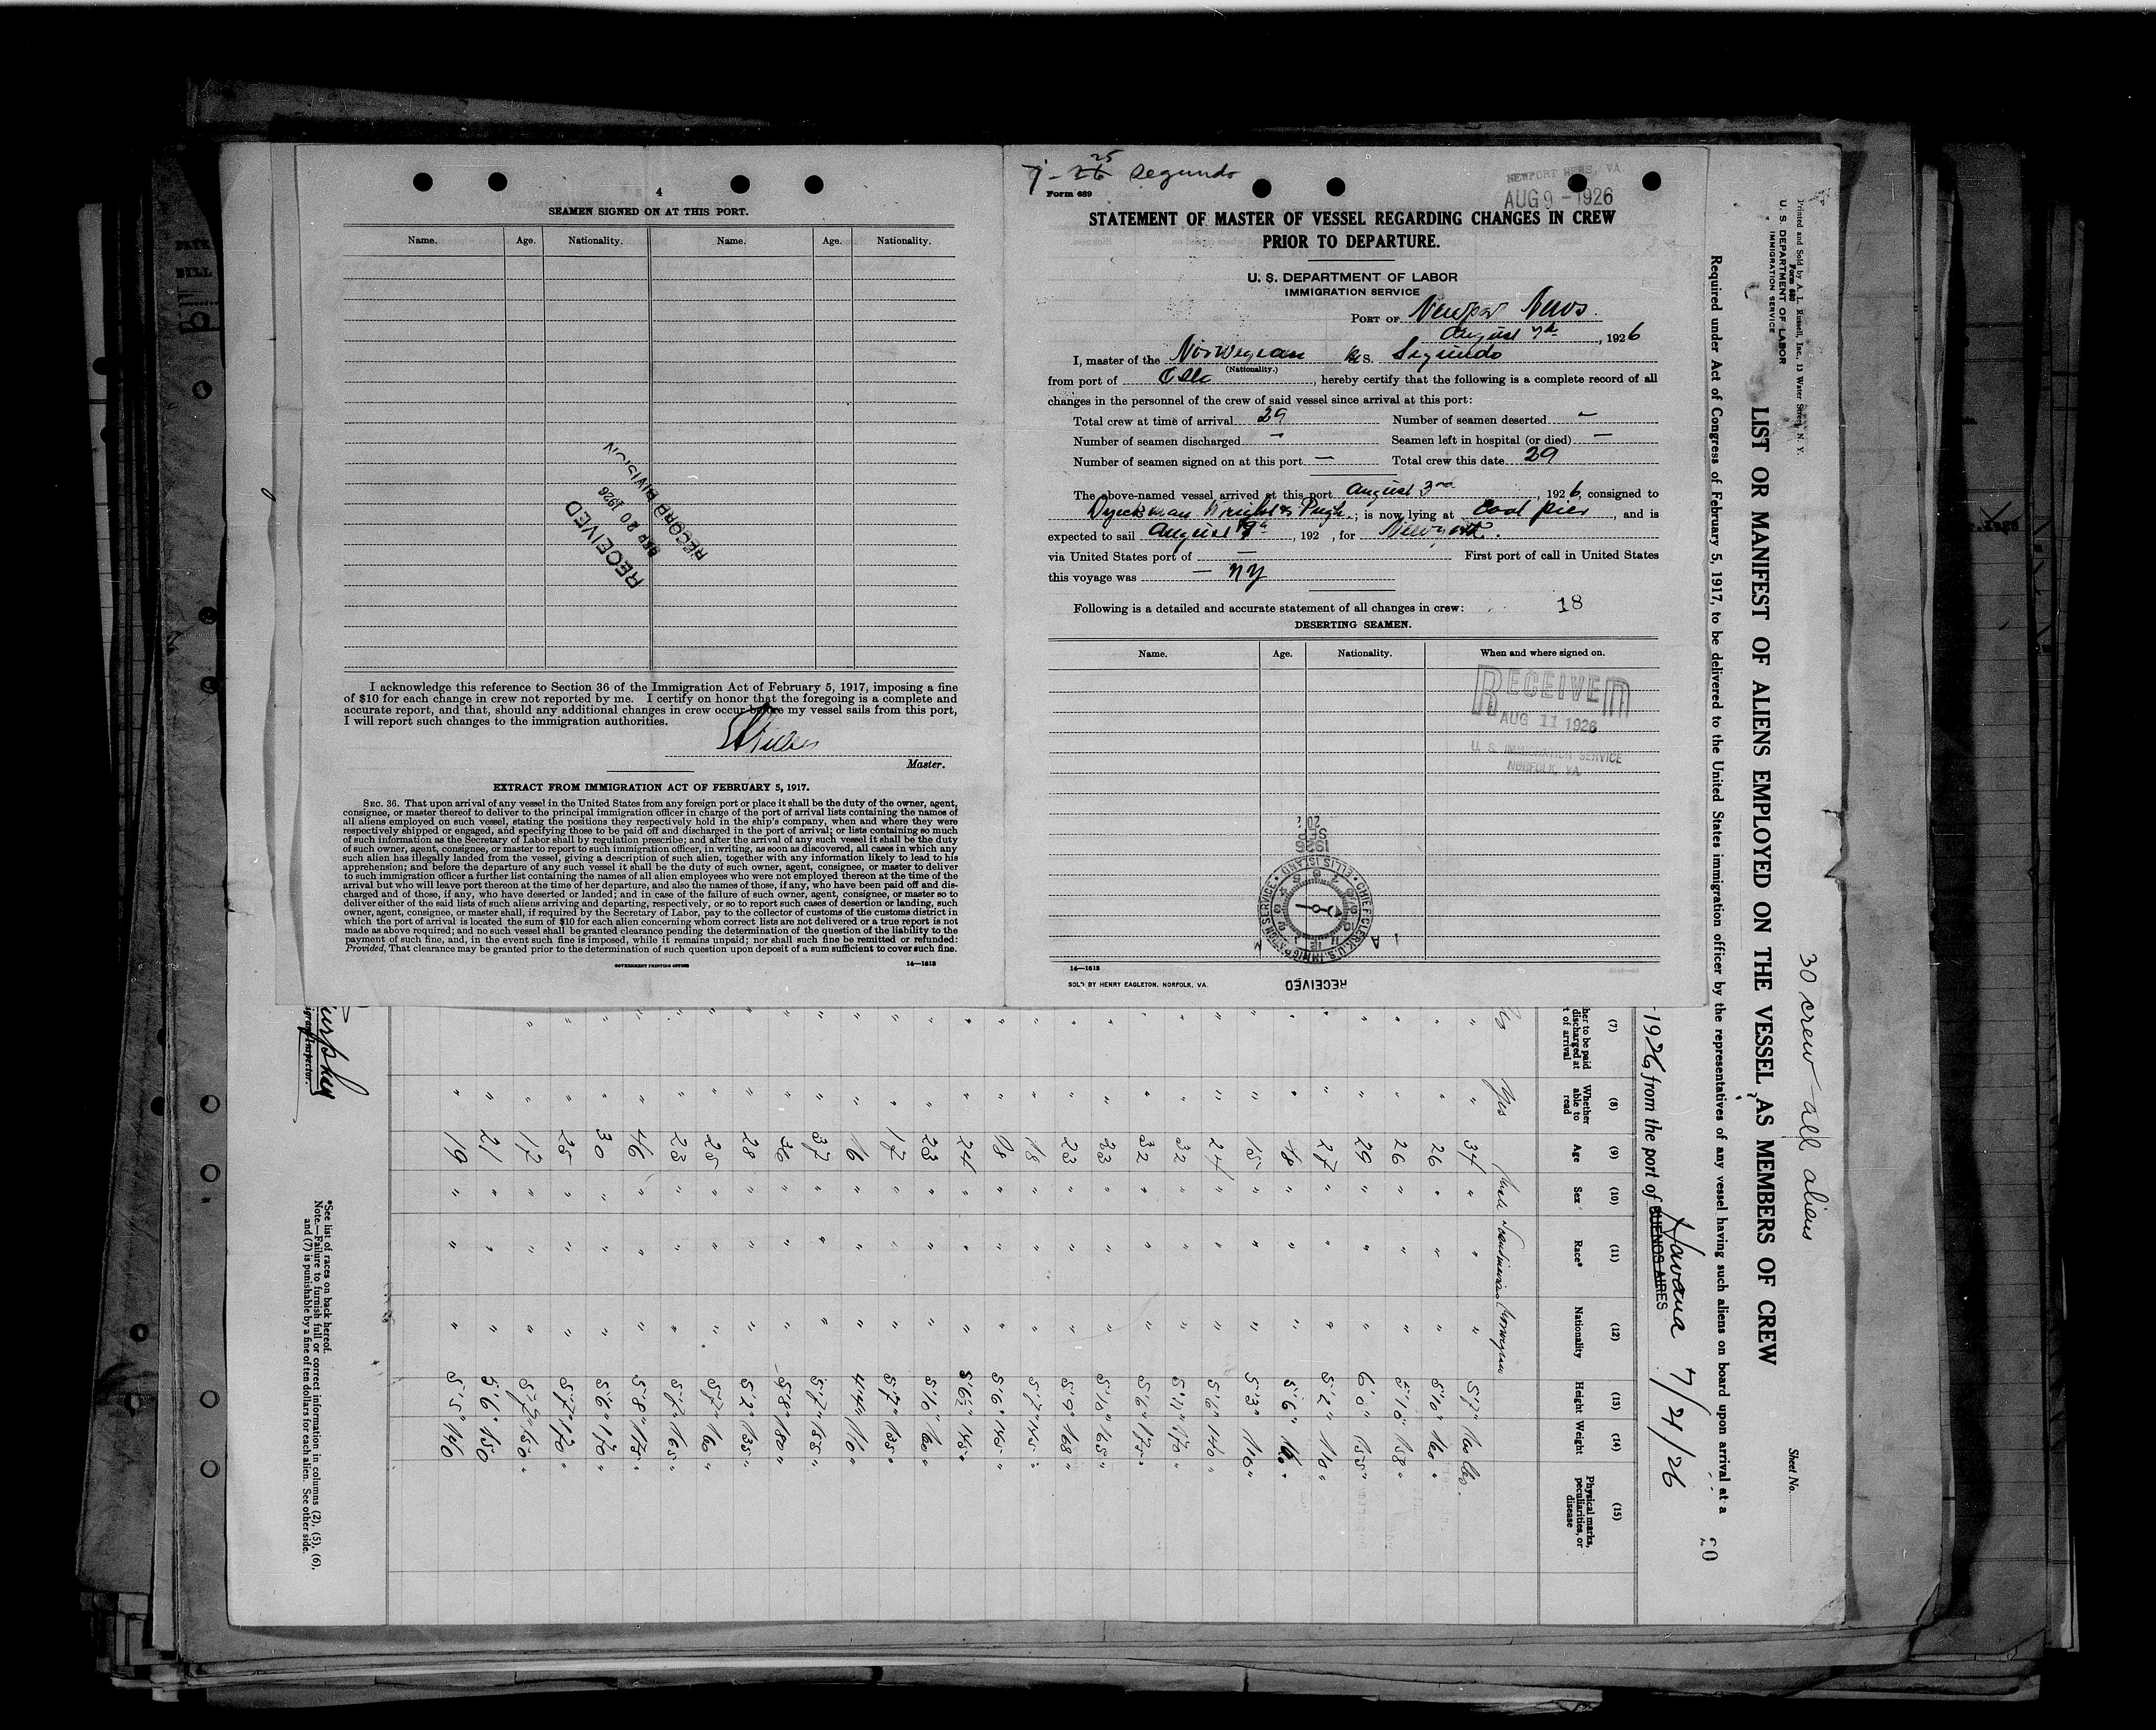 4
SEAMEN SIGNED ON AT THIS PORT.
Name. Age. Nationality. Name. Age. Nationality.
RECEIVED
SEP 20 1926
RECORD DIVISION
I acknowledge this reference to Section 36 of the Immigration Act of February 5, 1917, imposing a fine
of $10 for each change in crew not reported by me. I certify on honor that the foregoing is a complete and
accurate report, and that, should any additional changes in crew occur before my vessel sails from this port,
I will report such changes to the immigration authorities.
Master.
EXTRACT FROM IMMIGRATION ACT OF FEBRUARY 5, 1917.
SEC. 36. That upon arrival of any vessel in the United States from any foreign port or place it shall be the duty of the owner, agent,
consignee, or master thereof to deliver to the principal immigration officer in charge of the port of arrival lists containing the names of
all aliens employed on such vessel, stating the positions they respectively hold in the ship's company, when and where they were
respectively shipped or engaged, and specifying those to be paid off and discharged in the port of arrival; or lists containing so much
of such information as the Secretary of Labor shall by regulation prescribe; and after the arrival of any such vessel it shall be the duty
of such owner, agent, consignee, or master to report to such immigration officer, in writing, as soon as discovered, all cases in which any
such alien has illegally landed from the vessel, giving a description of such alien, together with any information likely to lead to his
apprehension; and before the departure of any such vessel it shall be the duty of such owner, agent, consignee, or master to deliver
to such immigration officer a further list containing the names of all alien employees who were not employed thereon at the time of the
arrival but who will leave port thereon at the time of her departure, and also the names of those, if any, who have been paid off and dis-
charged and of those, if any, who have deserted or landed; and in case of the failure of such owner, agent, consignee, or master so to
deliver either of the said lists of such aliens arriving and departing, respectively, or so to report such cases of desertion or landing, such
owner, agent, consignee, or master shall, if required by the Secretary of Labor, pay to the collector of customs of the customs district in
which the port of arrival is located the sum of $10 for each alien concerning whom correct lists are not delivered or a true report is not
made as above required; and no such vessel shall be granted clearance pending the determination of the question of the liability to the
payment of such fine, and, in the event such fine is imposed, while it remains unpaid; nor shall such fine be remitted or refunded:
Provided, That clearance may be granted prior to the determination of such question upon deposit of a sum sufficient to cover such fine.
GOVERNMENT PRINTING OFFICE 14—1613
25
26 Segundo
Form 689
NEWPORT NEWS, VA.
AUG 9 - 1926
STATEMENT OF MASTER OF VESSEL REGARDING CHANGES IN CREW
PRIOR TO DEPARTURE.
U. S. DEPARTMENT OF LABOR
IMMIGRATION SERVICE
PORT OF Newpor News.
August 7th, 1926
I, master of the Norwegian S. Segundo
(Nationality.)
from port of Oslo, hereby certify that the following is a complete record of all
changes in the personnel of the crew of said vessel since arrival at this port:
Total crew at time of arrival 29 Number of seamen deserted -
Number of seamen discharged - Seamen left in hospital (or died) -
Number of seamen signed on at this port - Total crew this date 29
The above-named vessel arrived at this port August 3rd, 1926, consigned to
Dyeckman Wright & Pugh; is now lying at Coal pier, and is
expected to sail August 9th, 192 , for Newyork.
via United States port of — First port of call in United States
this voyage was — NY
Following is a detailed and accurate statement of all changes in crew: 18
DESERTING SEAMEN.
Name. Age. Nationality. When and where signed on.
RECEIVED
AUG 11 1926
U. S. IMMIGRATION SERVICE
NORFOLK, VA.
1926
SEP
20
CHIEF CLERK U.S. IMMIGRATION SERVICE • ELLIS ISLAND
RECEIVED
14—1613
SOLD BY HENRY EAGLETON, NORFOLK, VA.
Printed and Sold by A. L. Russell, Inc., 13 Water Street, N. Y.
Form 680
U. S. DEPARTMENT OF LABOR
IMMIGRATION SERVICE
30 crew - all aliens
Sheet No.
LIST OR MANIFEST OF ALIENS EMPLOYED ON THE VESSEL AS MEMBERS OF CREW
Required under Act of Congress of February 5, 1917, to be delivered to the United States immigration officer by the representatives of any vessel having such aliens on board upon arrival at a
20
1926, from the port of BUENOS AIRES Havana 7/21/26
(7) (8) (9) (10) (11) (12) (13) (14) (15)
her to be paid discharged at t of arrival
Whether able to read
Age Sex Race* Nationality Height Weight
Physical marks, peculiarities, or disease
Yes 34 Male Scandinavian Norwegian 5'7" 160 lbs.
" 26 " " " 5'10" 160 "
" 26 " " " 5'10" 158 "
" 29 " " " 6'0" 155 "
" 27 " " " 5'2" 110 "
" 18 " " " 5'6"
" 15 " " " 5'3" 110 "
" 24 " " " 5'6" 140 "
" 32 " " " 5'11" 170 "
" 32 " " " 5'6" 175 "
" 33 " " " 5'10" 165 "
" 23 " " " 5'9" 168 "
" 18 " " " 5'7" 145 "
" " " " 5'6" 145 "
" 24 " " " 5'6½" 145 "
" 23 " " " 5'10" 160 "
" 17 " " " 5'7" 135 "
" 16 " " " 4'4" 110 "
" 37 " " " 5'7" 155 "
" 36 " " " 5'8" 180 "
" 28 " " " 5'2" 135 "
" 25 " " " 5'7" 160 "
" 23 " " " 5'7" 165 "
" 46 " " " 5'8" 175 "
" 30 " " " 5'6" 170 "
" 25 " " " 5'7" 170 "
" 17 " " " 5'7" 150 "
" 21 " " " 5'6" 150
" 19 " " " 5'5" 140
*See list of races on back hereof.
Note.—Failure to furnish full or correct information in columns (2), (5), (6),
and (7) is punishable by a fine of ten dollars for each alien. See other side.